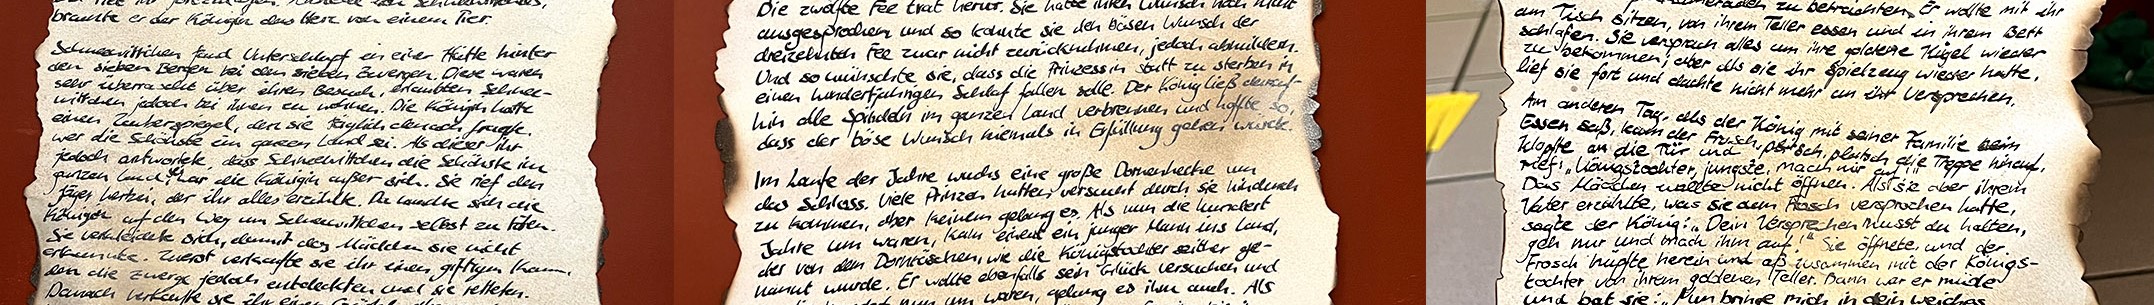 brauchte er der Königin das Herz von einem Tier.
Schneewittchen fand Unterschlupf in einer Hütte hinter
den sieben Bergen bei den sieben Zwergen. Diese waren
sehr überrascht über ihren Besuch, erlaubten Schnee-
wittchen jedoch bei ihnen zu wohnen. Die Königin hatte
einen Zauberspiegel, den sie täglich danach fragte,
wer die Schönste im ganzen Land sei. Als dieser ihr
jedoch antwortete, dass Schneewittchen die Schönste im
ganzen Land war die Königin außer sich. Sie rief den
Jäger herbei, der ihr alles erzählte. Da machte sich die
Königin auf den Weg um Schneewittchen selbst zu töten.
Sie verkleidete sich, damit das Mädchen sie nicht
erkannte. Zuerst verkaufte sie ihr einen giftigen Kamm,
den die Zwerge jedoch entdeckten und sie retteten.
Danach verkaufte sie ihr einen
Die zwölfte Fee trat hervor. Sie hatte ihren Wunsch noch nicht
ausgesprochen und so konnte sie den bösen Wunsch der
dreizehnten Fee zwar nicht zurücknehmen, jedoch abmildern.
Und so wünschte sie, dass die Prinzessin statt zu sterben in
einen hundertjährigen Schlaf fallen solle. Der König ließ darauf-
hin alle Spindeln im ganzen Land verbrennen und hoffte so,
dass der böse Wunsch niemals in Erfüllung gehen würde.
Im Laufe der Jahre wuchs eine große Dornenhecke um
das Schloss. Viele Prinzen hatten versucht durch sie hindurch
zu kommen, aber keinem gelang es. Als nun die hundert
Jahre um waren, kam ein junger Mann ins Land,
der von dem Dornröschen, wie die Königstochter seither ge-
nannt wurde. Er wollte ebenfalls sein Glück versuchen und
nun um waren, gelang es ihm auch. Als
zu betrachten. Er wollte mit ihr
am Tisch sitzen, von ihrem Teller essen und in ihrem Bett
schlafen. Sie versprach alles um ihre goldene Kugel wieder
zu bekommen; aber als sie ihr Spielzeug wieder hatte,
lief sie fort und dachte nicht mehr an ihr Versprechen.
Am anderen Tag, als der König mit seiner Familie beim
Essen saß, kam der Frosch, plitsch, platsch die Treppe hinauf,
klopfte an die Tür und
rief: „Königstochter, jüngste, mach mir auf!"
Das Mädchen wollte nicht öffnen. Als sie aber ihrem
Vater erzählte, was sie dem Frosch versprochen hatte,
sagte der König: „Dein Versprechen musst du halten,
geh nur und mach ihm auf!" Sie öffnete und der
Frosch hüpfte herein und aß zusammen mit der Königs-
tochter von ihrem goldenen Teller. Dann war er müde
und bat sie: „Nun bringe mich in dein weiches